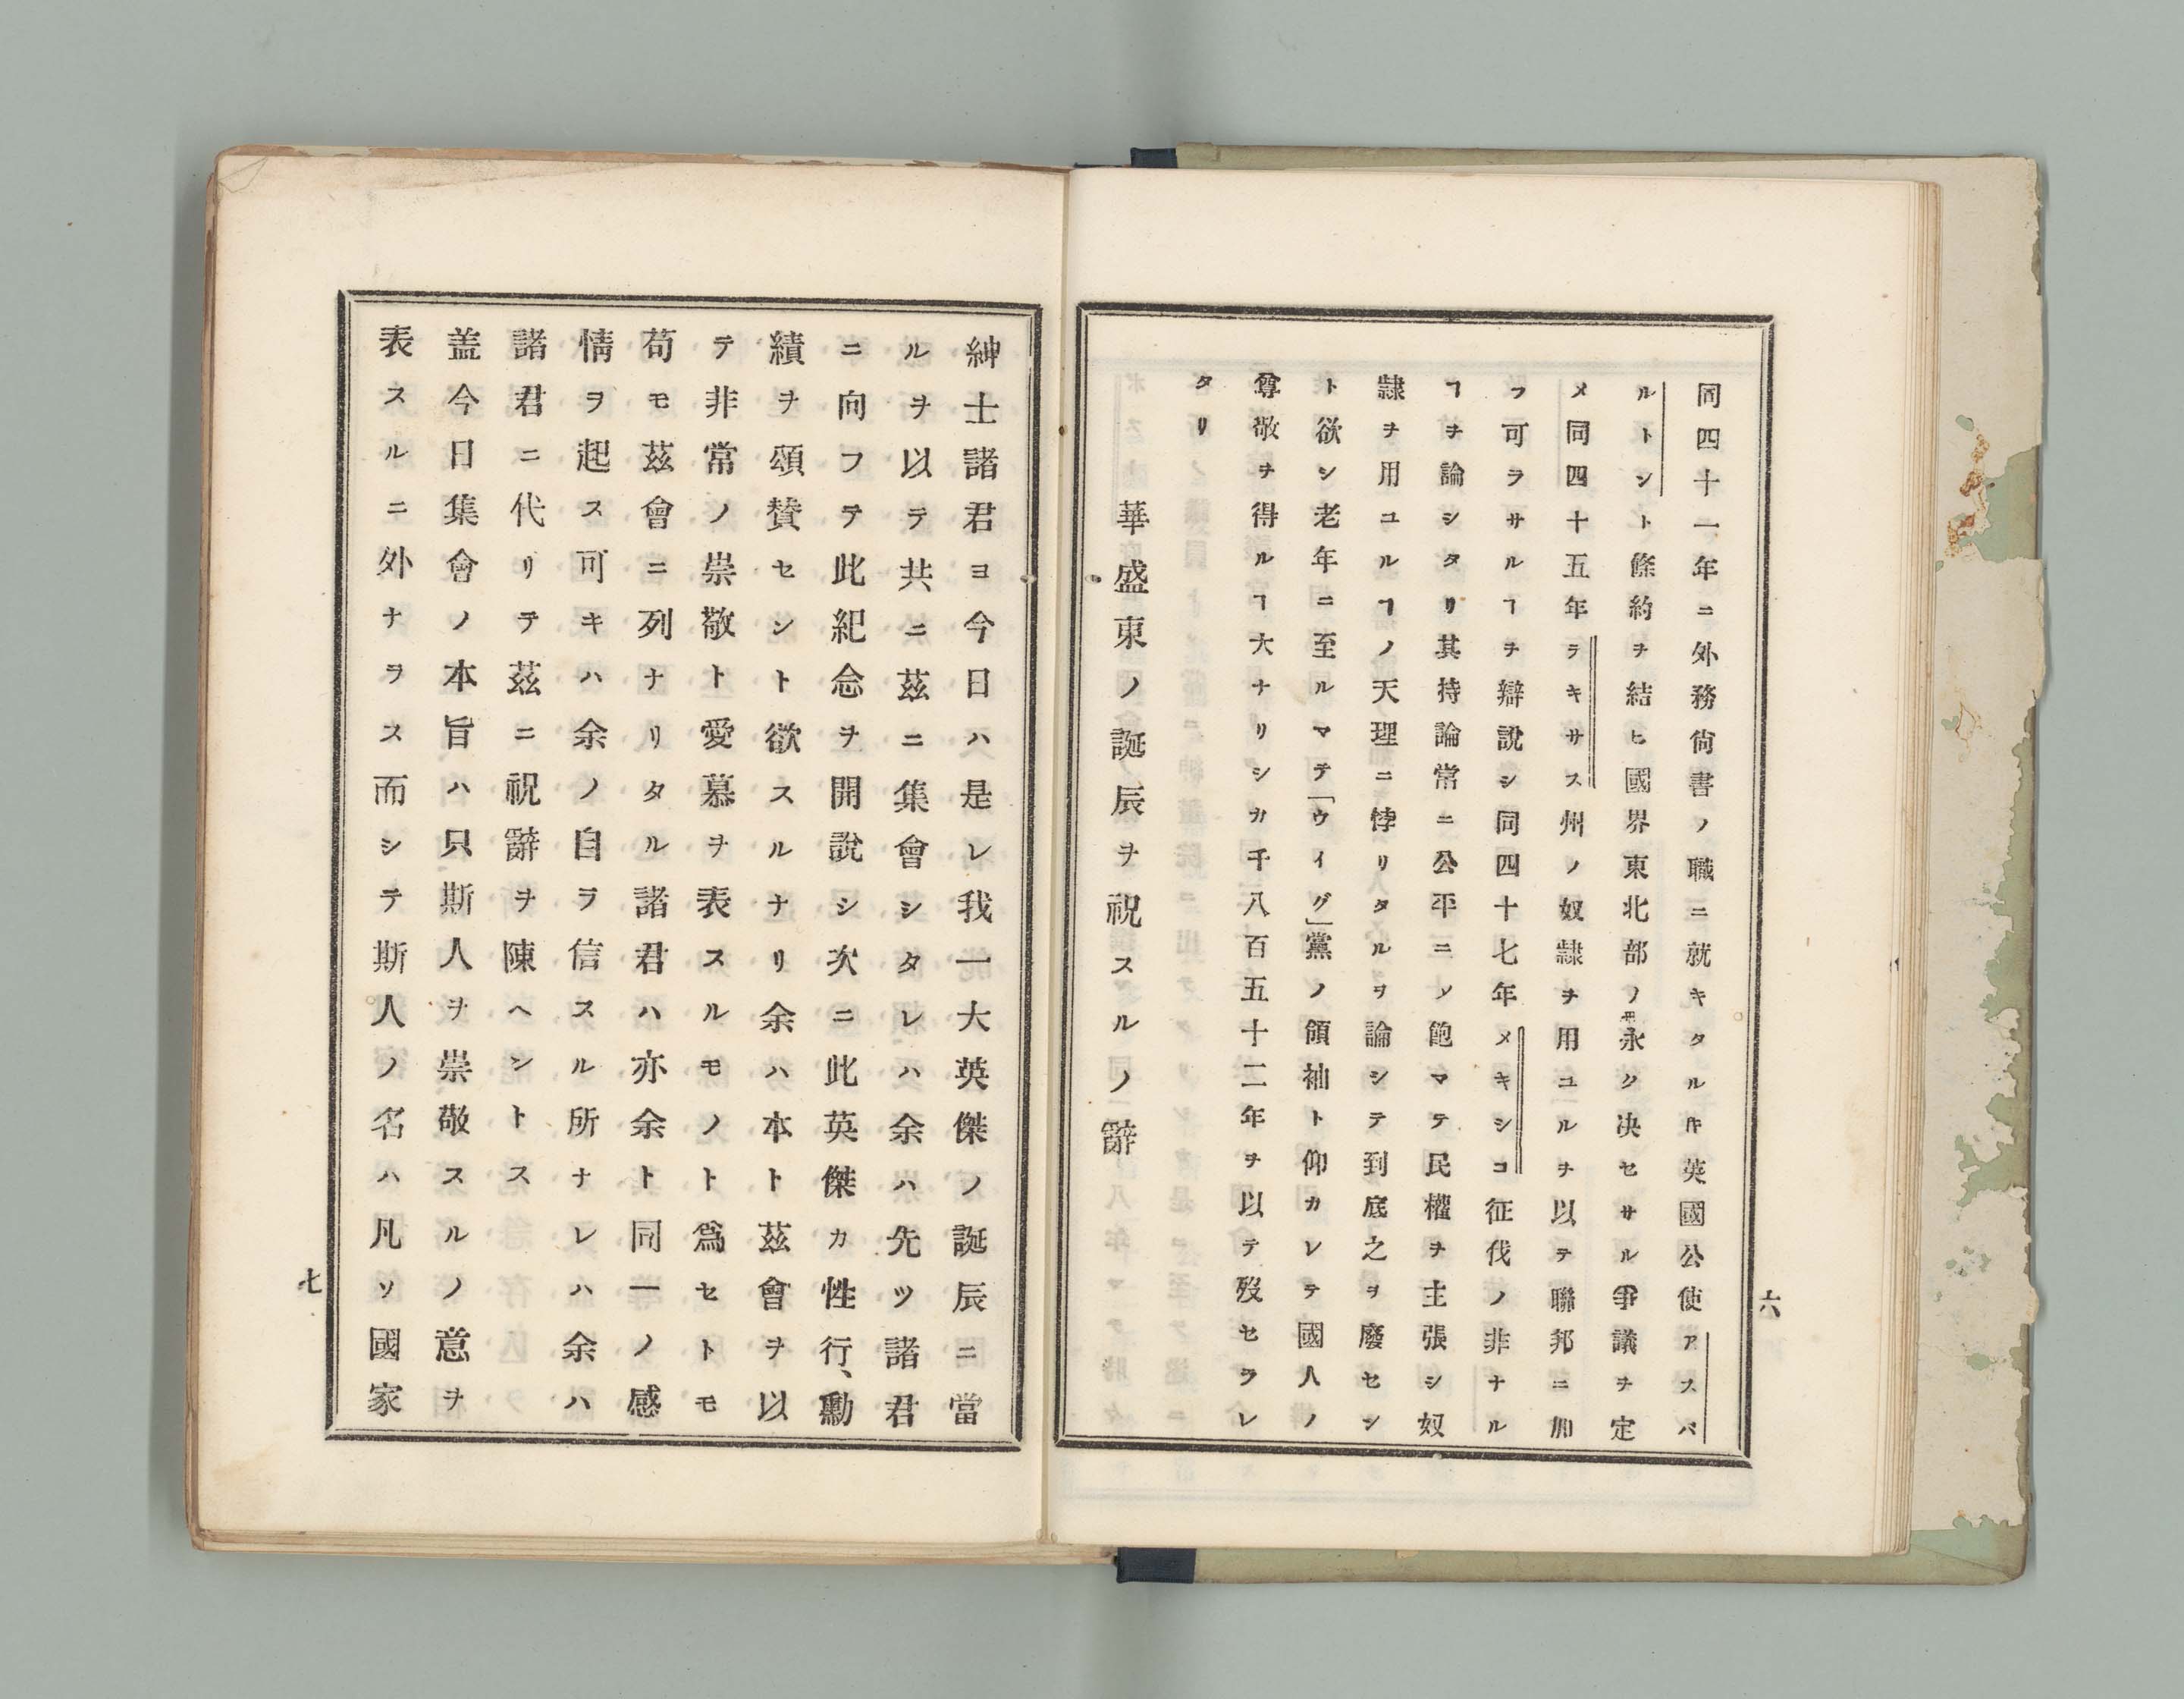 同四十一年ニ外務尙書ノ職ニ就キタルヰ英國公使アスバ
ルトシト條約ヲ結ヒ國界東北部ノ永ク决セサル爭議ヲ定
メ同四十五年ラキサス州ノ奴隷ヲ用ユルヲ以テ聯邦ニ加
フ可ラサルヿヲ辯說シ同四十七年メキシコ征伐ノ非ナル
ヿヲ論シタリ其持論常ニ公平ニソ飽マテ民權ヲ主張シ奴
隷ヲ用ユルヿノ天理ニ悖リタルヲ論シテ到底之ヲ廢セン
ト欲シ老年ニ至ルマテ「ウイグ」黨ノ領袖ト仰カレテ國人ノ
尊敬ヲ得ルヿ大ナリシカ千八百五十二年ヲ以テ歿セラレ
タリ
華盛東ノ誕辰ヲ祝スルノ辭
六
紳士諸君ヨ今日ハ是レ我一大英傑ノ誕辰ニ當
ルヲ以テ共ニ茲ニ集會シタレハ余ハ先ツ諸君
ニ向フテ此紀念ヲ開說シ次ニ此英傑カ性行、勳
績ヲ頌賛セント欲スルナリ余ハ本ト茲會ヲ以
テ非常ノ崇敬ト愛慕ヲ表スルモノト爲セトモ
苟モ茲會ニ列ナリタル諸君ハ亦余ト同一ノ感
情ヲ起ス可キハ余ノ自ラ信スル所ナレハ余ハ
諸君ニ代リテ茲ニ祝辭ヲ陳ヘントス
盖今日集會ノ本旨ハ只斯人ヲ崇敬スルノ意ヲ
表スルニ外ナラス而シテ斯人ノ名ハ凡ソ國家
七